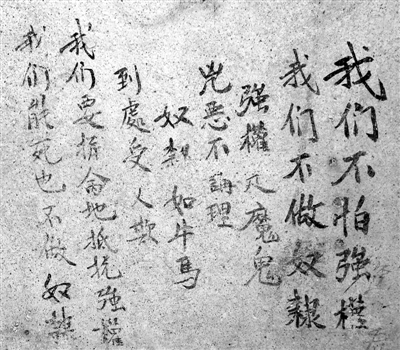 我们不怕强權
我们不做奴隸
强權魔鬼
兇恶不講理
奴隸如牛馬
到處受人欺
我们要拚命地抵抗強權
我们能死也不做奴隸